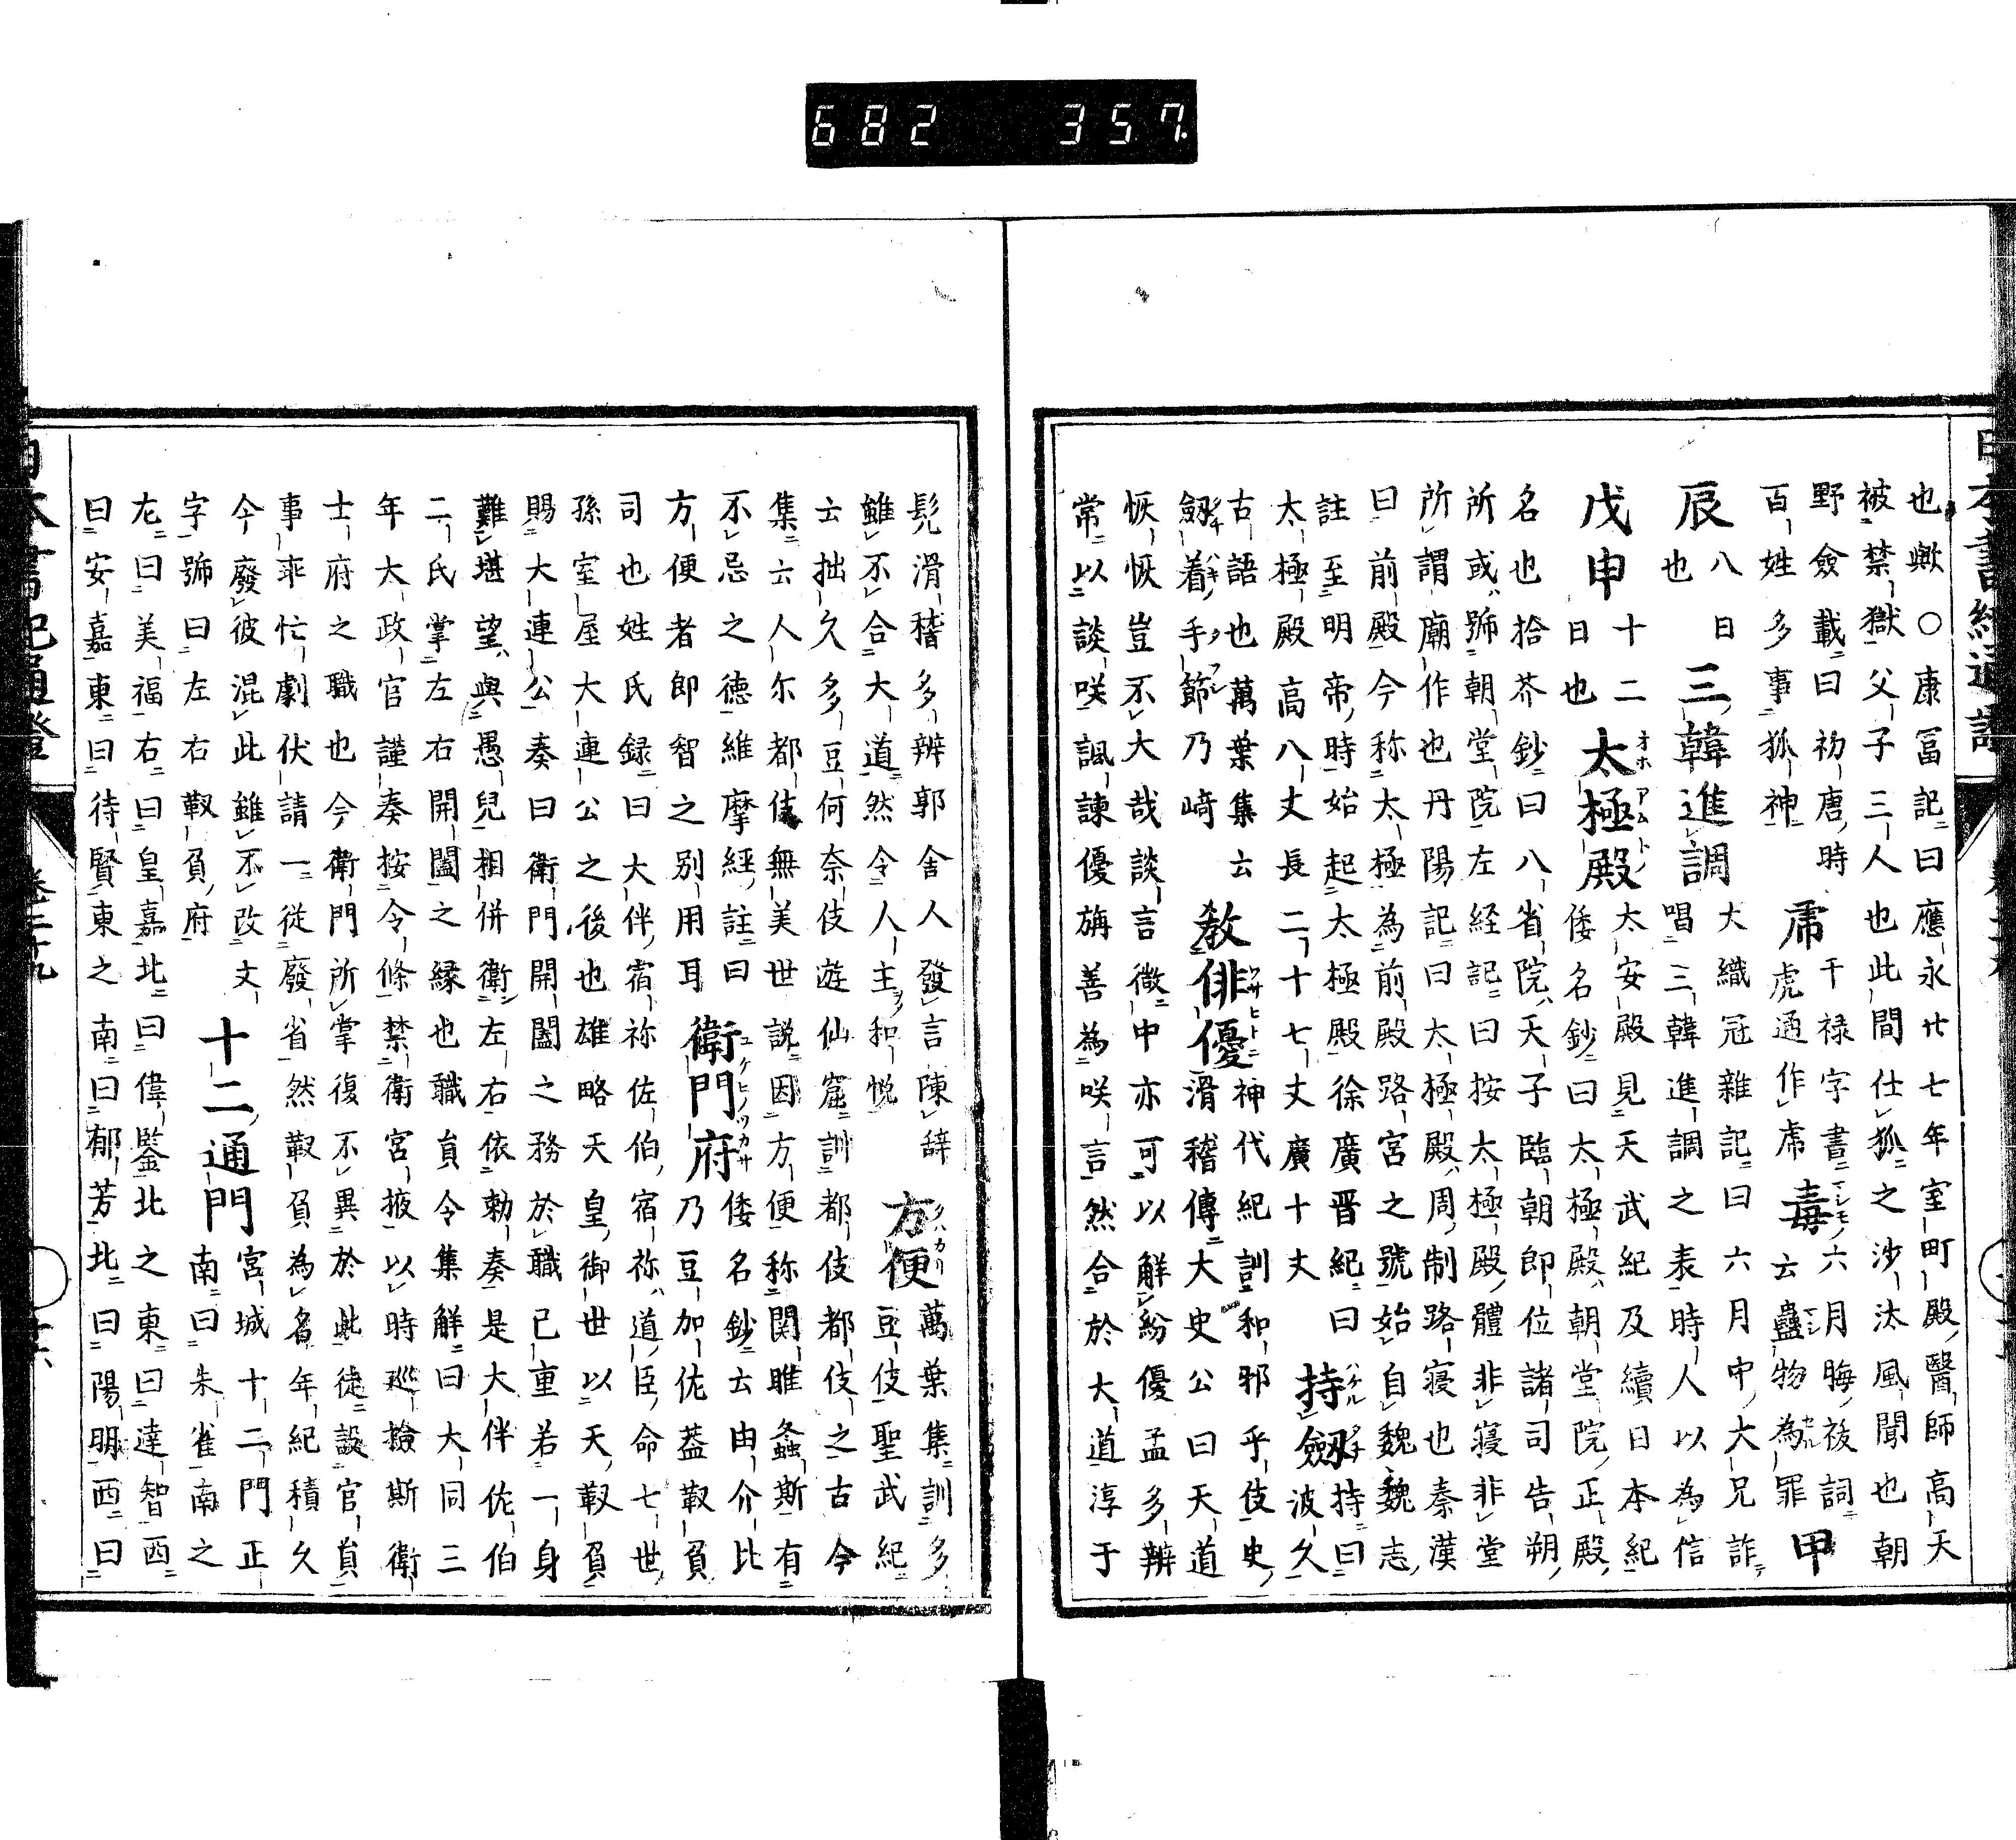 682 357
也歟○康冨記曰應永廿七年室町殿醫師高天
被禁獄父子三人也此間仕狐之沙汰風聞也朝
野僉載曰初唐時百姓多事狐神 虎 干禄字書虎通作乕 毒 マレモノ 六月晦祓詞云蠱物為罪 甲
辰 八日也 三韓進調 大織冠雜記曰六月中大兄詐唱三韓進調之表時人以為信
戊申 十二日也 太極殿 オホアムトノ 太安殿見天武紀及續日本紀倭名鈔曰太極殿朝堂院正殿
名也拾芥鈔曰八省院天子臨朝即位諸司告朔
所或號朝堂院左経記曰按太極殿體非寝非堂
所謂廟作也丹陽記曰太極殿周制路寝也秦漢
曰前殿今称太極為前殿路宮之號始自魏魏志
註至明帝時始起太極殿徐廣晋紀曰
太極殿高八丈長二十七丈廣十丈 持劔 波久
古語也萬葉集云劔着手節乃崎 教俳優 ワサヒトニ 神代紀訓和邪乎伎史
滑稽傳大史公曰天道
恢恢豈不大哉談言微中亦可以解紛優孟多辨
常以談咲諷諫優旃善為咲言然合於大道淳于
髡滑稽多辨郭舎人發言陳辞
雖不合大道然令人主和悦 方便 タハカリ 萬葉集訓多豆伎聖武紀
云拙久多豆何奈伎遊仙窟訓都伎都伎之古今
集云人尓都伎無美世説因方便称関雎螽斯有
不忌之德維摩經註曰
方便者即智之別用耳 衛門府 ユケヒノツカサ 倭名鈔云由介比乃豆加佐葢靫負
司也姓氏録曰大伴宿祢佐伯宿祢道臣命七世
孫室屋大連公之後也雄略天皇御世以天靫負
賜大連公奏曰衛門開闔之務於職已重若一身
難堪望與愚兒相併衛左右依勅奏是大伴佐伯
二氏掌左右開闔之縁也職員令集解曰大同三
年大政官謹奏按令條禁衛宮掖以時巡撿斯衛
士府之職也今衛門所掌復不異於此徒設官員
事乖忙劇伏請一従廢省然靫負為名年紀積久
今廢彼混此雖不改文
字號曰左右靫負府 十二通門 宮城十二門正南曰朱雀南之
左曰美福右曰皇嘉北曰偉鑒北之東曰達智西
曰安嘉東曰待賢東之南曰郁芳北曰陽明西曰